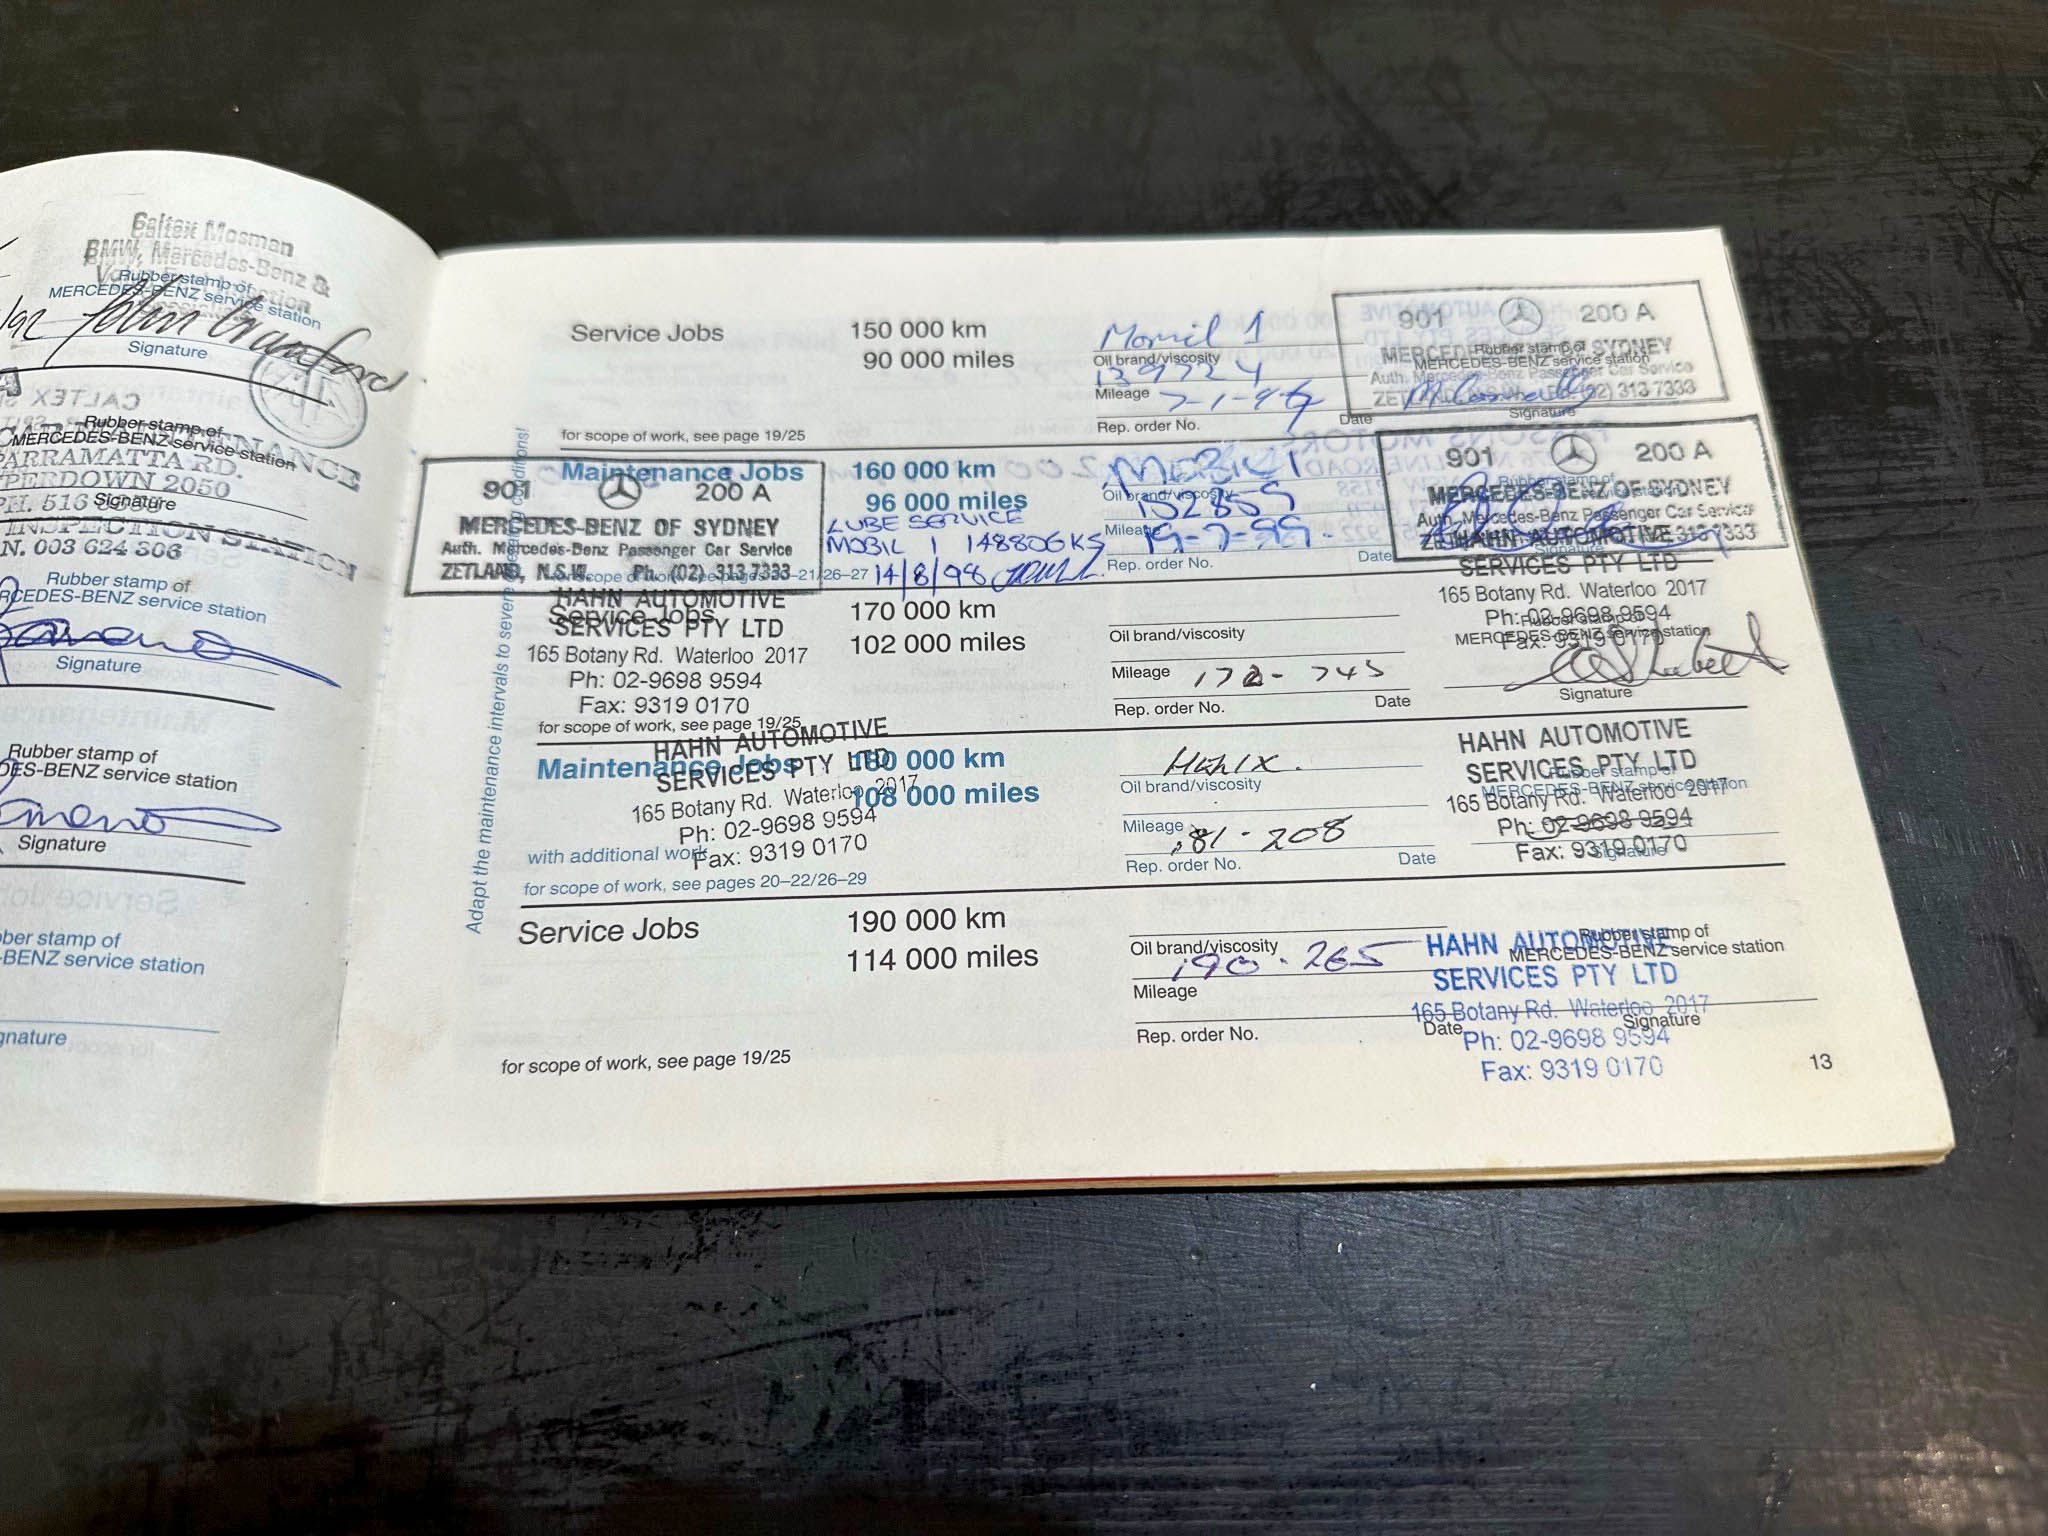 Caltex Mosman
BMW, Mercedes-Benz &
Rubber stamp of
MERCEDES-BENZ service station
/92
Signature
CALTEX
Rubber stamp of
MERCEDES-BENZ service station
CAR MAINTENANCE
PARRAMATTA RD.
PERDOWN 2050
PH. 516
Signature
INSPECTION STATION
N. 003 624 306
Rubber stamp of
RCEDES-BENZ service station
Signature
Rubber stamp of
DES-BENZ service station
Signature
ber stamp of
-BENZ service station
gnature
Adapt the maintenance intervals to severe operating conditions!
Service Jobs
150 000 km
90 000 miles
Mobil 1
Oil brand/viscosity
139724
Mileage
7-1-96
Rep. order No.
Date
901 200 A
MERCEDES-BENZ OF SYDNEY
Rubber stamp of
MERCEDES-BENZ service station
Auth. Mercedes-Benz Passenger Car Service
ZETLAND, N.S.W. Ph. (02) 313 7333
Signature
for scope of work, see page 19/25
Maintenance Jobs
160 000 km
96 000 miles
901 200 A
MERCEDES-BENZ OF SYDNEY
Auth. Mercedes-Benz Passenger Car Service
ZETLAND, N.S.W. Ph. (02) 313 7333
LUBE SERVICE
MOBIL 1 148806 KS
14/8/98
for scope of work, see pages 20-21/26-27
MOBIL 1
Oil brand/viscosity
152859
Mileage
19-7-99
Rep. order No.
Date
901 200 A
MERCEDES-BENZ OF SYDNEY
Auth. Mercedes-Benz Passenger Car Service
ZETLAND 313 7333
Signature
HAHN AUTOMOTIVE
SERVICES PTY LTD
165 Botany Rd. Waterloo 2017
Ph: 02-9698 9594
Fax: 9319 0170
Service Jobs
170 000 km
102 000 miles
Oil brand/viscosity
Mileage 172-745
Rep. order No.
Date
HAHN AUTOMOTIVE
SERVICES PTY LTD
165 Botany Rd. Waterloo 2017
Ph: 02-9698 9594
Fax: 9319 0170
Rubber stamp of
MERCEDES-BENZ service station
Signature
for scope of work, see page 19/25
Maintenance Jobs
180 000 km
108 000 miles
HAHN AUTOMOTIVE
SERVICES PTY LTD
165 Botany Rd. Waterloo 2017
Ph: 02-9698 9594
Fax: 9319 0170
with additional work
for scope of work, see pages 20–22/26–29
Oil brand/viscosity
Mileage 181-208
Rep. order No.
Date
HAHN AUTOMOTIVE
SERVICES PTY LTD
165 Botany Rd. Waterloo 2017
Ph: 02-9698 9594
Fax: 9319 0170
Rubber stamp of
MERCEDES-BENZ service station
Signature
Service Jobs
190 000 km
114 000 miles
Oil brand/viscosity
190-265
Mileage
Rep. order No.
Date
HAHN AUTOMOTIVE
SERVICES PTY LTD
165 Botany Rd. Waterloo 2017
Ph: 02-9698 9594
Fax: 9319 0170
Rubber stamp of
MERCEDES-BENZ service station
Signature
for scope of work, see page 19/25
13